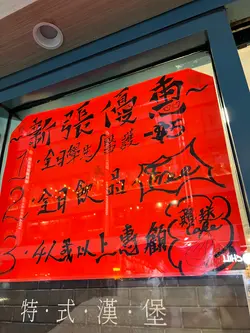 ~新張優惠~
1.全日學生優惠
2.全日飲品 Free
3.4人或以上惠顧
特·式·漢·堡